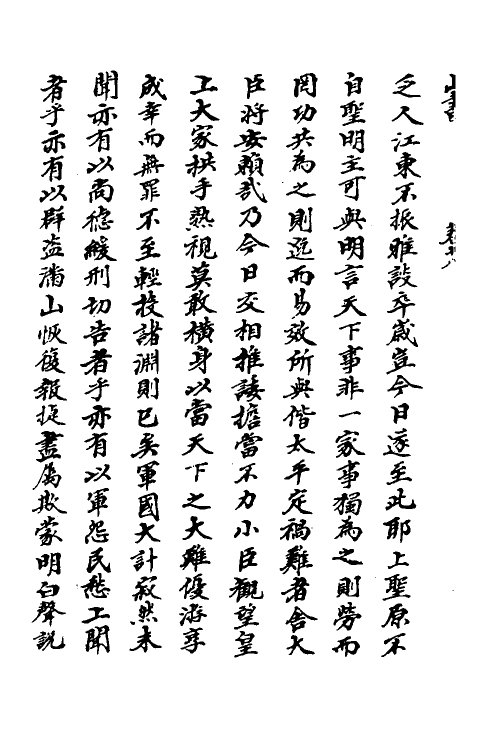 山書 卷十八
乏人江東不振雖設卒歲豈今日遂至此耶上聖原不
自聖明主可與明言天下事非一家事獨為之則勞而
罔功共為之則逸而易效所與偕太平定禍難者舍大
臣將安賴哉乃今日交相推諉擔當不力小臣觀望皇
上大家拱手熟視莫敢橫身以當天下之大難優游享
成幸而無罪不至輕投諸淵則已矣軍國大計寂然未
聞亦有以尚德緩刑切告者乎亦有以軍怨民愁上聞
者乎亦有以群盜滿山恢復報捷盡屬欺蒙明白聲說